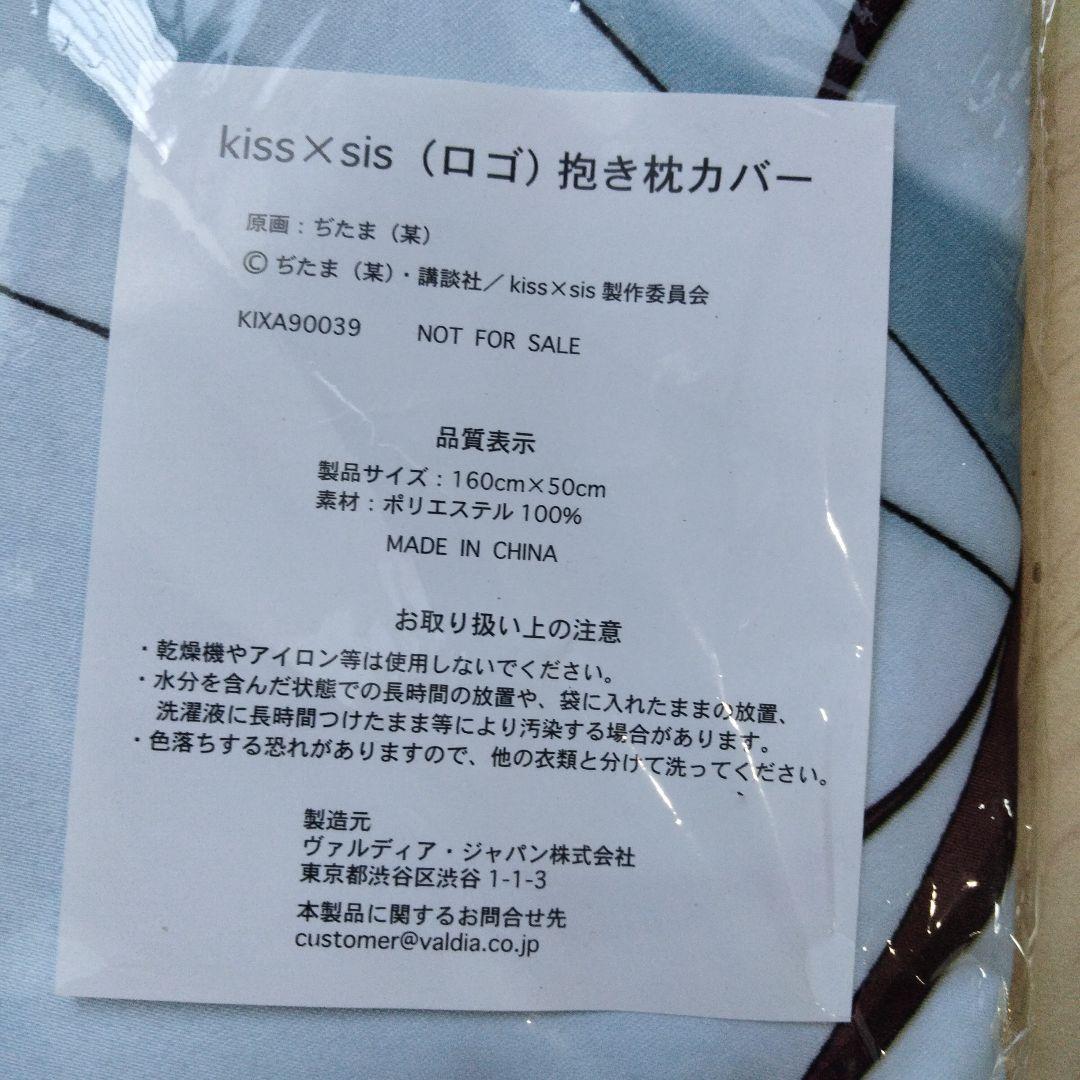 kiss×sis（ロゴ）抱き枕カバー
原画：ぢたま（某）
© ぢたま（某）・講談社／ kiss×sis 製作委員会
KIXA90039 NOT FOR SALE
品質表示
製品サイズ：160cm×50cm
素材：ポリエステル 100%
MADE IN CHINA
お取り扱い上の注意
・乾燥機やアイロン等は使用しないでください。
・水分を含んだ状態での長時間の放置や、袋に入れたままの放置、
洗濯液に長時間つけたまま等により汚染する場合があります。
・色落ちする恐れがありますので、他の衣類と分けて洗ってください。
製造元
ヴァルディア・ジャパン株式会社
東京都渋谷区渋谷 1-1-3
本製品に関するお問合せ先
customer@valdia.co.jp